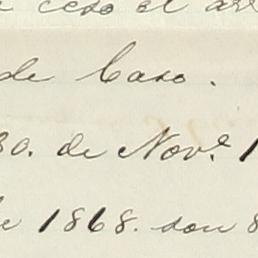 ceso el
de Caso.
30. de Nov.e 1
de 1868. son 8